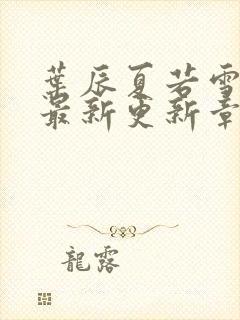 葉辰夏若雪
最新更新章
龍露